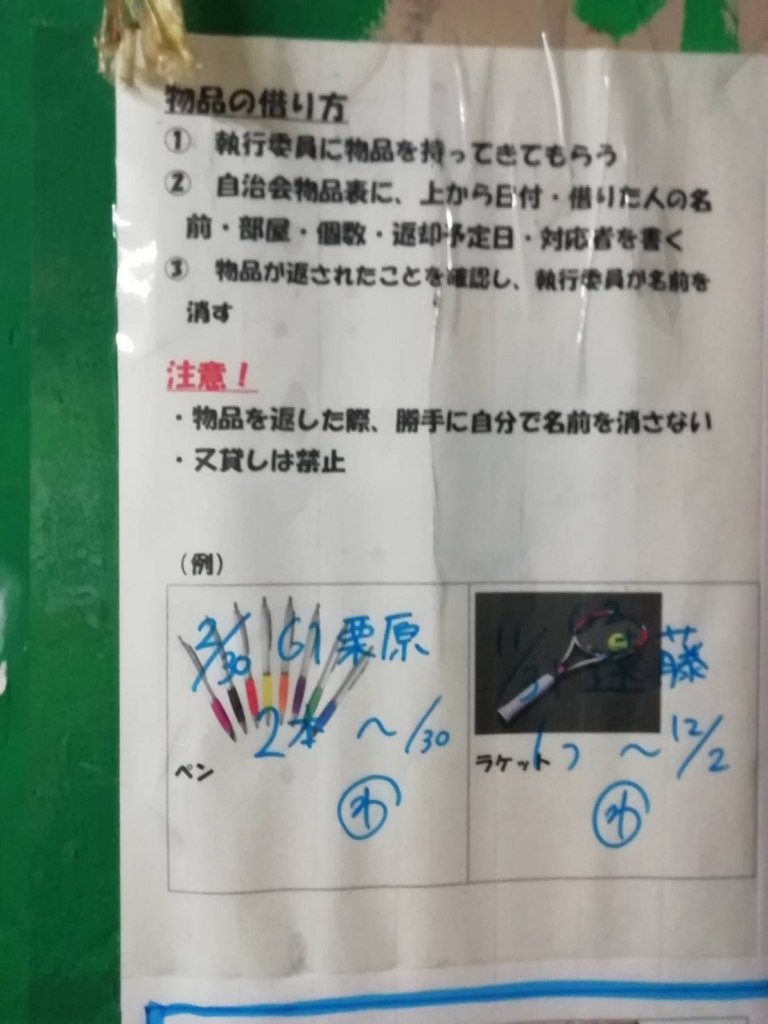 物品の借り方
① 執行委員に物品を持ってきてもらう
② 自治会物品表に、上から日付・借りた人の名
前・部屋・個数・返却予定日・対応者を書く
③ 物品が返されたことを確認し、執行委員が名前を
消す
注意！
・物品を返した際、勝手に自分で名前を消さない
・又貸しは禁止
（例）
2/30 G1 栗原
2本 ～/30
ペン
わ
11/31 遠藤
1つ ～12/2
ラケット
わ